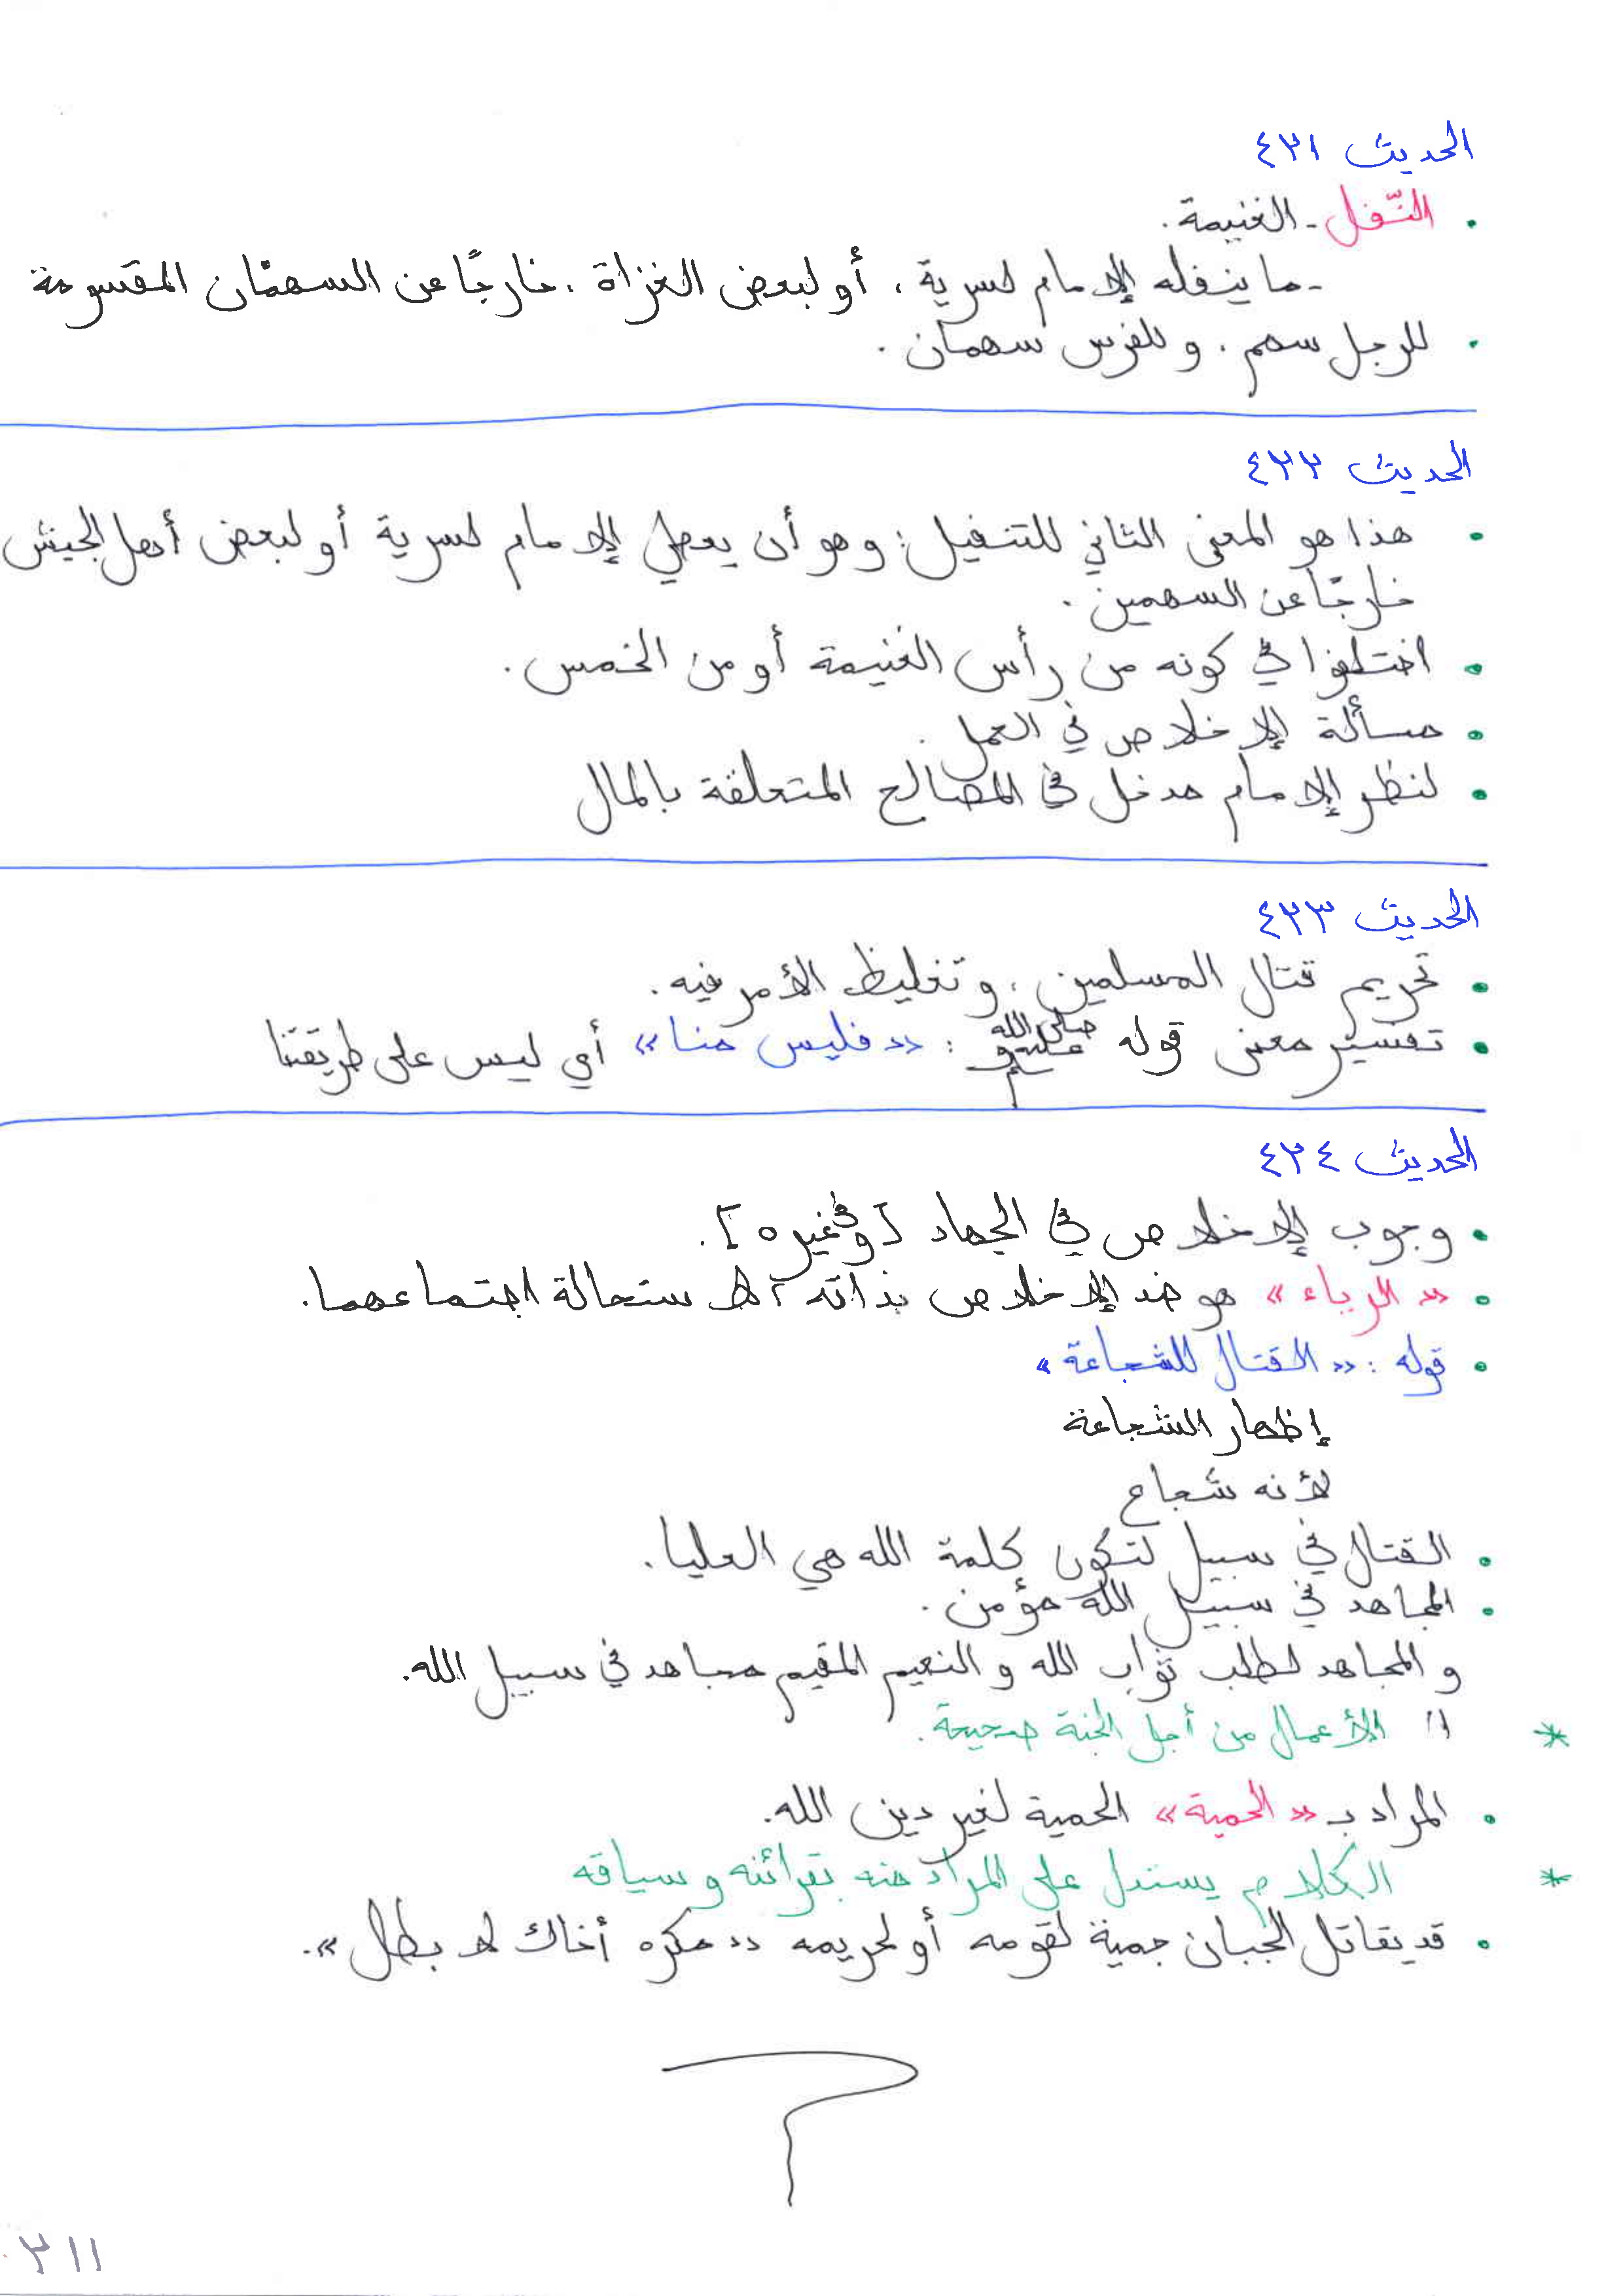 الحديث ٤٢١
• النّفل - الغنيمة.
- ما ينفله الإمام لسرية، أو لبعض الغزاة، خارجًا عن السهمان المقسومة
• للرجل سهم، وللفرس سهمان.
الحديث ٤٢٢
• هذا هو المعنى الثاني للتنفيل: وهو أن يعطي الإمام لسرية أو لبعض أهل الجيش
خارجًا عن السهمين.
• اختلفوا في كونه من رأس الغنيمة أو من الخمس.
• مسألة الإخلاص في العمل.
• لنظر الإمام مدخل في المصالح المتعلقة بالمال
الحديث ٤٢٣
• تحريم قتال المسلمين، وتغليظ الأمر فيه.
• تفسير معنى قوله صلى الله عليه وسلم: «فليس منا» أي ليس على طريقتنا
الحديث ٤٢٤
• وجوب الإخلاص في الجهاد [وفي غيره].
• «الرياء» هو ضد الإخلاص بذاته، لاستحالة اجتماعهما.
• قوله: «القتال للشجاعة»
إظهار الشجاعة
لأنه شجاع
• القتال في سبيل لتكون كلمة الله هي العليا.
• المجاهد في سبيل الله مؤمن.
والمجاهد لطلب ثواب الله والنعيم المقيم مجاهد في سبيل الله.
* الأعمال من أجل الجنة صحيحة.
• المراد بـ «الحمية» الحمية لغير دين الله.
* الكلام يستدل على المراد منه بقرائنه وسياقه
• قد يقاتل الجبان حمية لقومه أو لحريمه «مكره أخاك لا بطل».
٢١١